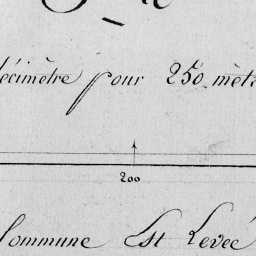 décimètre pour 250 mèt
200
Commune Est Levée